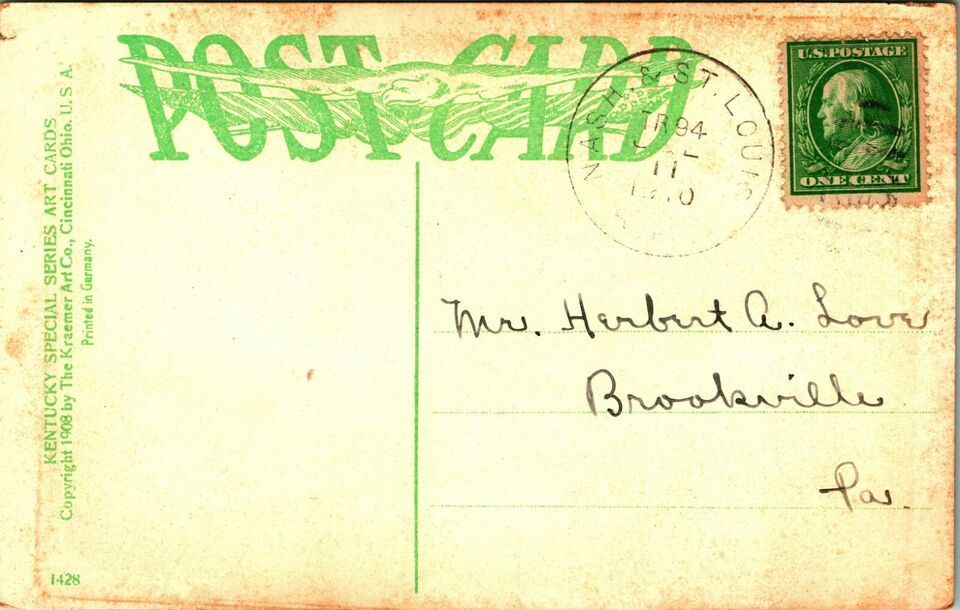 POST CARD
KENTUCKY SPECIAL SERIES ART CARDS
Copyright 1908 by The Kraemer Art Co., Cincinnati Ohio. U. S. A.
Printed in Germany.
1428
NASH. & ST. LOUIS
TR 94
11
1910
U.S. POSTAGE
ONE CENT
Mr. Herbert A. Love
Brookville
Pa.